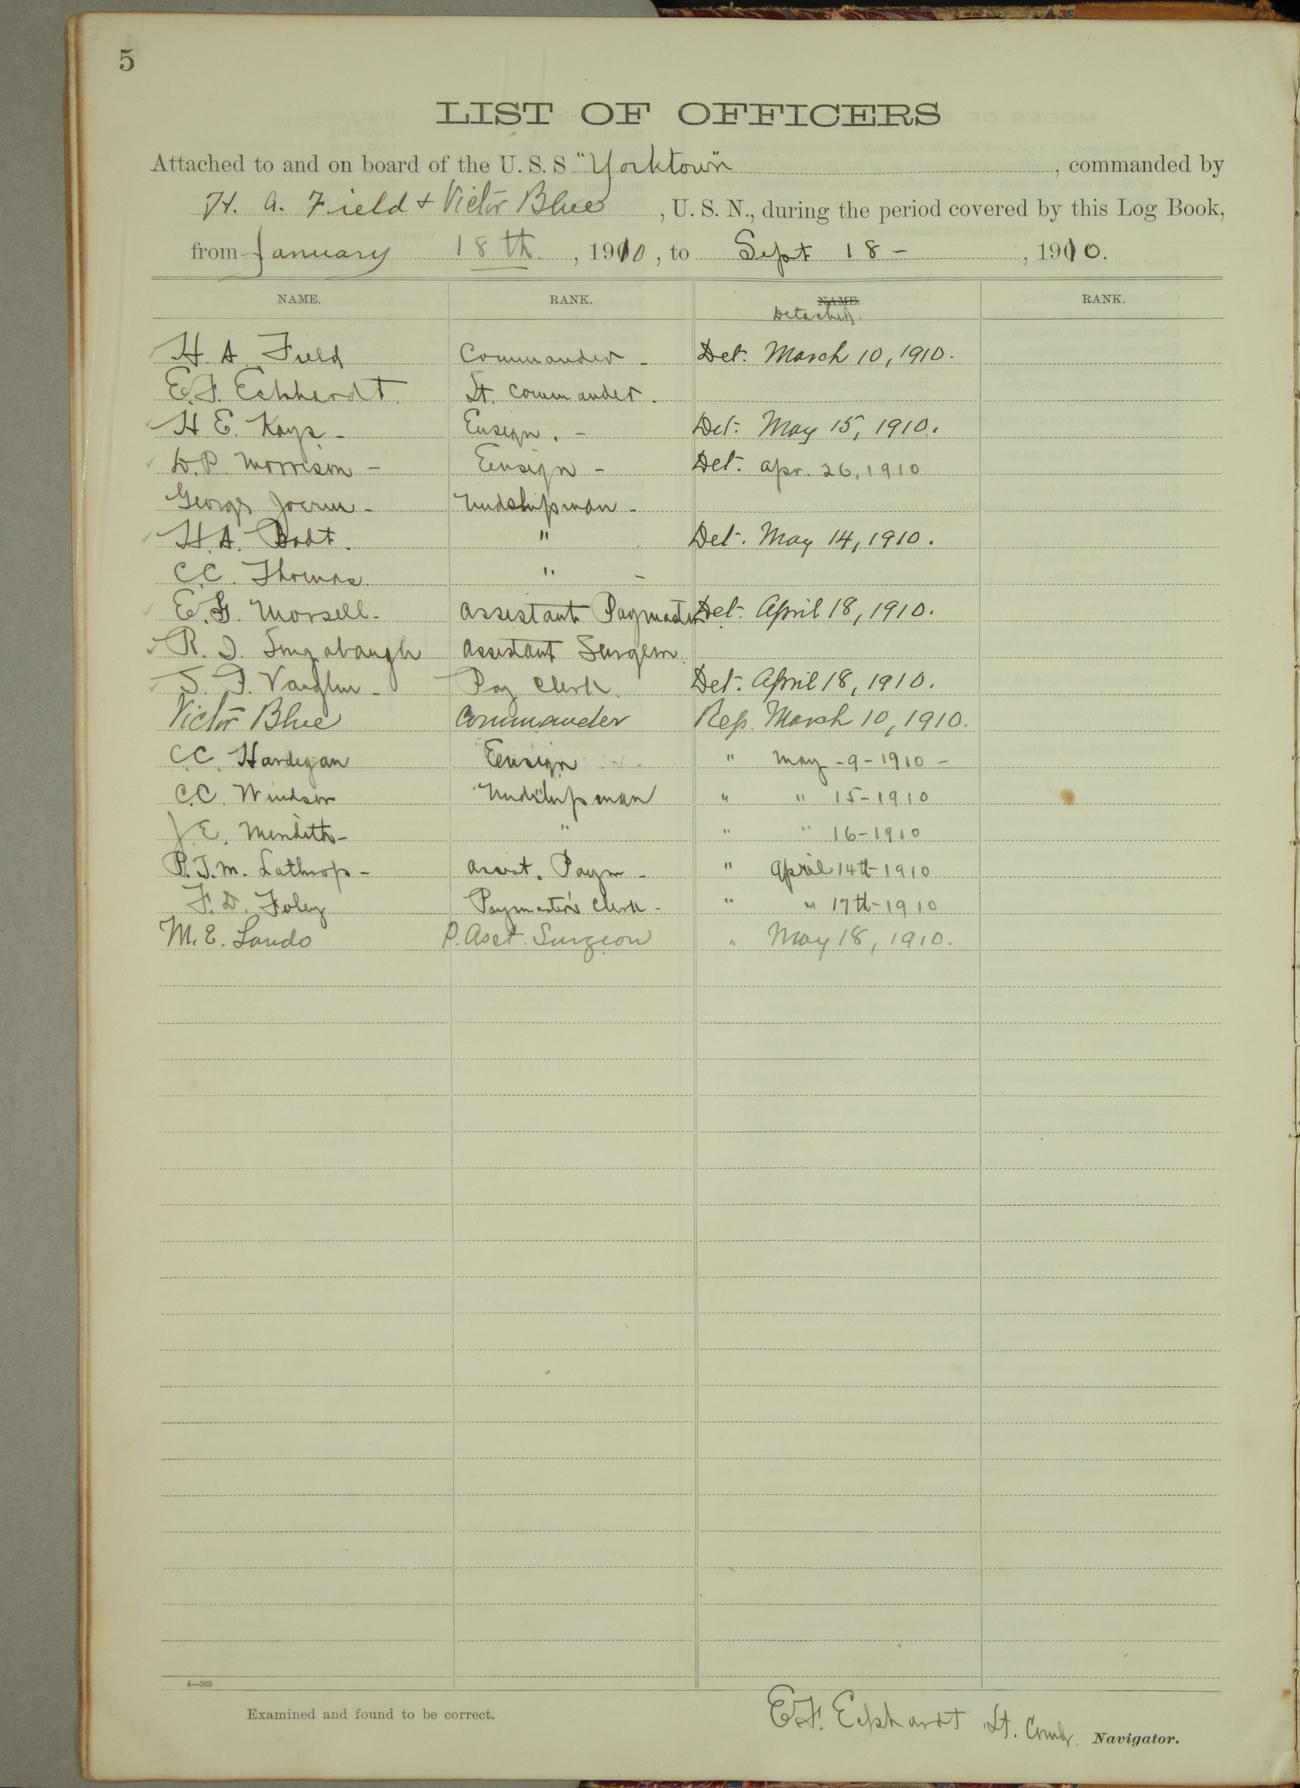 5
LIST OF OFFICERS
Attached to and on board of the U. S. S "Yorktown", commanded by
H. A. Field & Victor Blue, U. S. N., during the period covered by this Log Book,
from January 18th, 1910, to Sept 18 -, 1910.
NAME. RANK. NAME Detached. RANK.
H. A. Field Commander - Det. March 10, 1910.
E. F. Eckhardt Lt. Commander.
H. E. Kays - Ensign. - Det. May 15, 1910.
D. P. Morrison - Ensign - Det. Apr. 26, 1910
George Joerns - Midshipman -
H. A. Badt. " Det. May 14, 1910.
C. C. Thomas " -
E. G. Morsell. Assistant Paymaster Det. April 18, 1910.
R. I. Longabaugh Assistant Surgeon.
Vaughn - Pay Clerk. Det. April 18, 1910.
Victor Blue Commander Rep. March 10, 1910.
C. C. Hartigan Ensign " May - 9 - 1910 -
C. C. Windsor Midshipman " " 15 - 1910
J. E. Meredith - " " " 16 - 1910
P. T. M. Lathrop - Assist. Paym - " April 14th - 1910
F. D. Foley Paymaster's Clerk - " " 17th - 1910
M. E. Lando P. Asst. Surgeon " May 18, 1910.
4—265
Examined and found to be correct.
E. F. Eckhardt Lt. Comdr. Navigator.